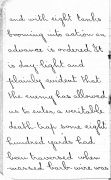 and with eight tanks
booming into action an
advance is ordered. It
is day-light and
plainly evident that
the enemy has allowed
us to enter a veritable
death trap some eight
hundred yards had
been traversed when
massed barb-wire was